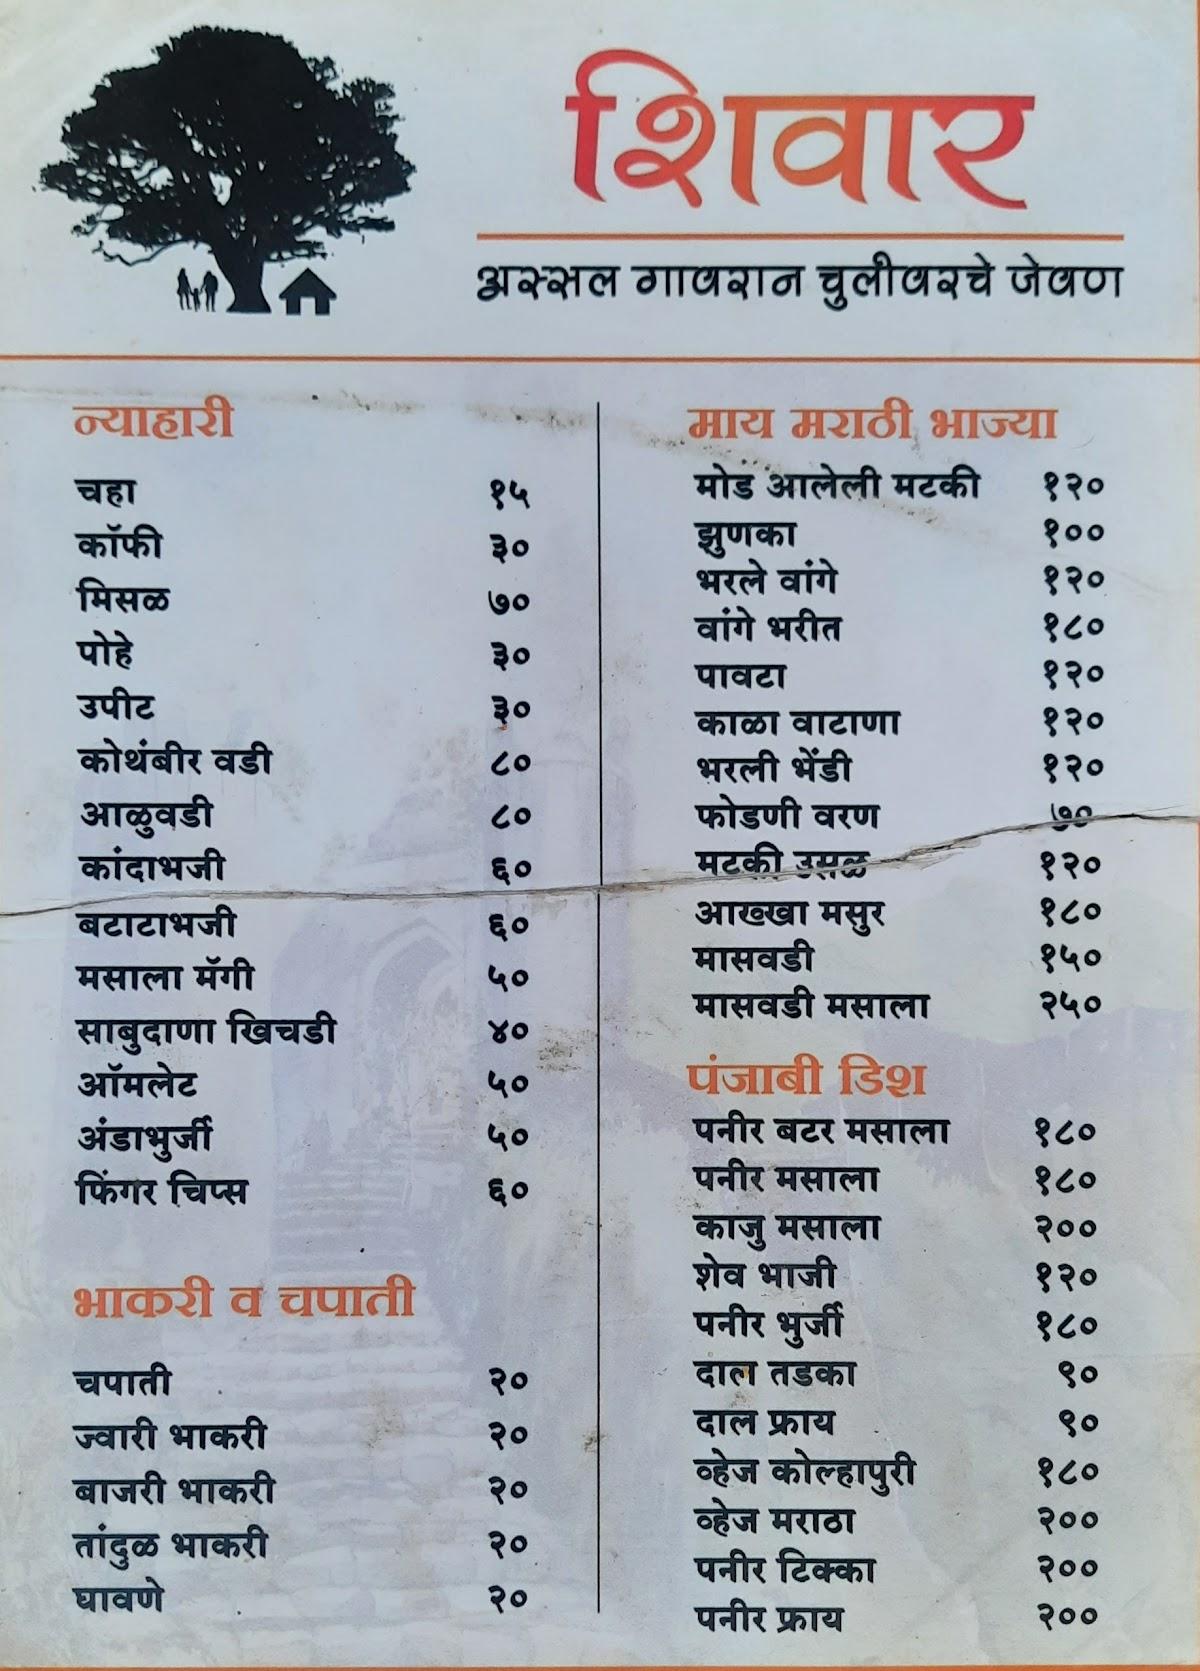 शिवार
अस्सल गावरान चुलीवरचे जेवण
न्याहारी
चहा १५
कॉफी ३०
मिसळ ७०
पोहे ३०
उपीट ३०
कोथंबीर वडी ८०
आळुवडी ८०
कांदाभजी ६०
बटाटाभजी ६०
मसाला मॅगी ५०
साबुदाणा खिचडी ४०
ऑमलेट ५०
अंडाभुर्जी ५०
फिंगर चिप्स ६०
भाकरी व चपाती
चपाती २०
ज्वारी भाकरी २०
बाजरी भाकरी २०
तांदुळ भाकरी २०
घावणे २०
माय मराठी भाज्या
मोड आलेली मटकी १२०
झुणका १००
भरले वांगे १२०
वांगे भरीत १८०
पावटा १२०
काळा वाटाणा १२०
भरली भेंडी १२०
फोडणी वरण ७०
मटकी उसळ १२०
आख्खा मसुर १८०
मासवडी १५०
मासवडी मसाला २५०
पंजाबी डिश
पनीर बटर मसाला १८०
पनीर मसाला १८०
काजु मसाला २००
शेव भाजी १२०
पनीर भुर्जी १८०
दाल तडका ९०
दाल फ्राय ९०
व्हेज कोल्हापुरी १८०
व्हेज मराठा २००
पनीर टिक्का २००
पनीर फ्राय २००